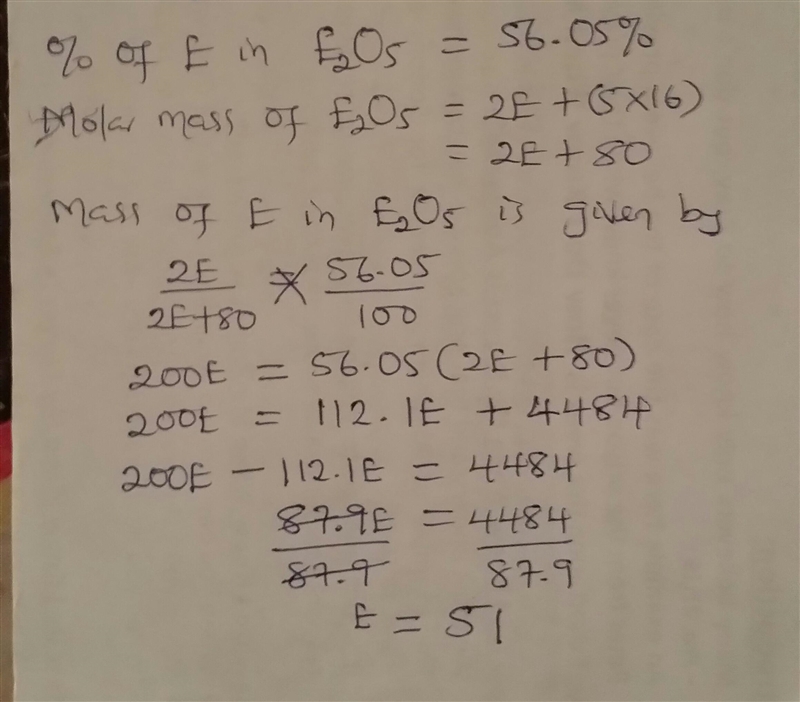 % of E in E₂O₅ = 56.05%
Molar mass of E₂O₅ = 2E + (5×16)
= 2E + 80
Mass of E in E₂O₅ is given by
2E/2E+80 = 56.05/100
200E = 56.05(2E + 80)
200E = 112.1E + 4484
200E - 112.1E = 4484
87.9E/87.9 = 4484/87.9
E = 51